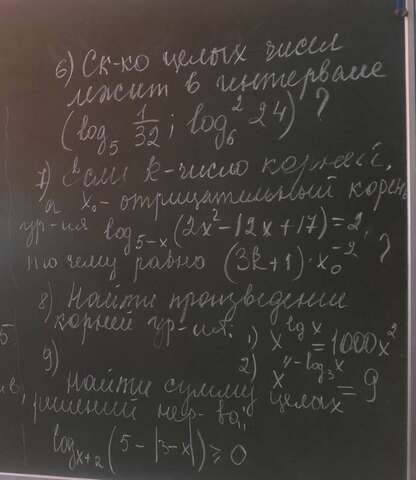 6) Ск-ко целых чисел
лежит в интервале
(log₅ 1/32 ; log₆² 24) ?
7) Если k-число корней,
а x₀- отрицательный корень
ур-ия log₅₋ₓ(2x²-12x+17)=2,
то чему равно (3k+1)·x₀⁻² ?
8) Найти произведение
корней ур-ия: 1) x^lg x = 1000x²
2) x^4-log₃x = 9
9) Найти сумму целых
решений нер-ва:
logₓ₊₂(5-|3-x|) ≥ 0